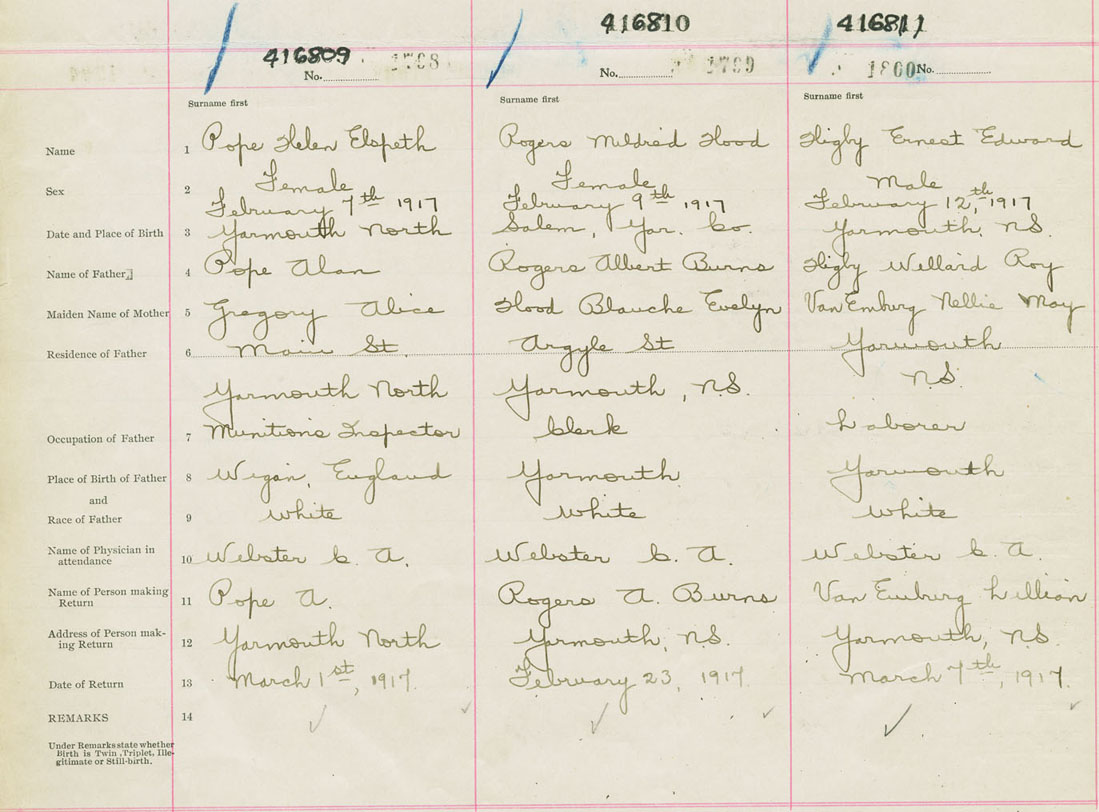 416809 416810 416811
No. 1798 No. 1799 1800 No.
Surname first Surname first Surname first
Name 1 Pope Helen Elspeth Rogers Mildred Hood Higby Ernest Edward
Sex 2 Female Female Male
February 7th 1917 February 9th 1917 February 12th, 1917
Date and Place of Birth 3 Yarmouth North Salem, Yar. Co. Yarmouth, N.S.
Name of Father 4 Pope Alan Rogers Albert Burns Higby Willard Roy
Maiden Name of Mother 5 Gregory Alice Hood Blauche Evelyn Van Emburg Nellie May
Residence of Father 6 Main St. Argyle St Yarmouth
Yarmouth North Yarmouth, N.S. N.S.
Occupation of Father 7 Munitions Inspector Clerk Laborer
Place of Birth of Father 8 Wigan, England Yarmouth Yarmouth
and
Race of Father 9 White White White
Name of Physician in
attendance 10 Webster C. A. Webster C. A. Webster C. A.
Name of Person making
Return 11 Pope A. Rogers A. Burns Van Emburg Lillian
Address of Person mak-
ing Return 12 Yarmouth North Yarmouth, N.S. Yarmouth, N.S
Date of Return 13 March 1st, 1917 February 23, 1917. March 7th, 1917.
REMARKS 14
Under Remarks state whether
Birth is Twin, Triplet, Ille-
gitimate or Still-birth.